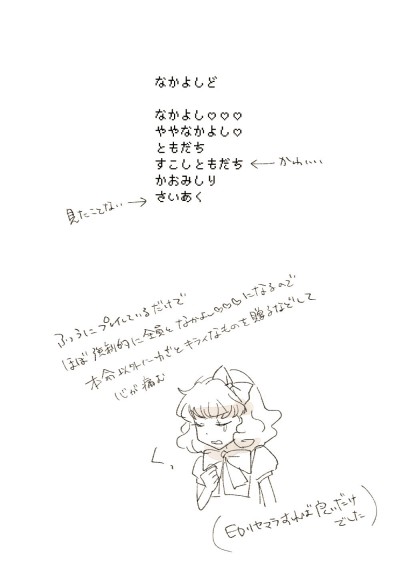 なかよしど
なかよし♡♡♡
ややなかよし♡
ともだち
すこしともだち ← かわ….
かおみしり
見たことない → さいあく
ふつうにプレイしているだけで
ほぼ強制的に全員となかよし♡♡♡になるので
本命以外にわざとキライなものを贈るなどして
心が痛む
くっ
(EDリセマラすれば良いだけ
でした)